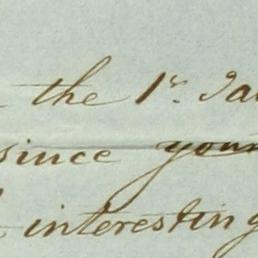 the 1st Ja
since your
interesting